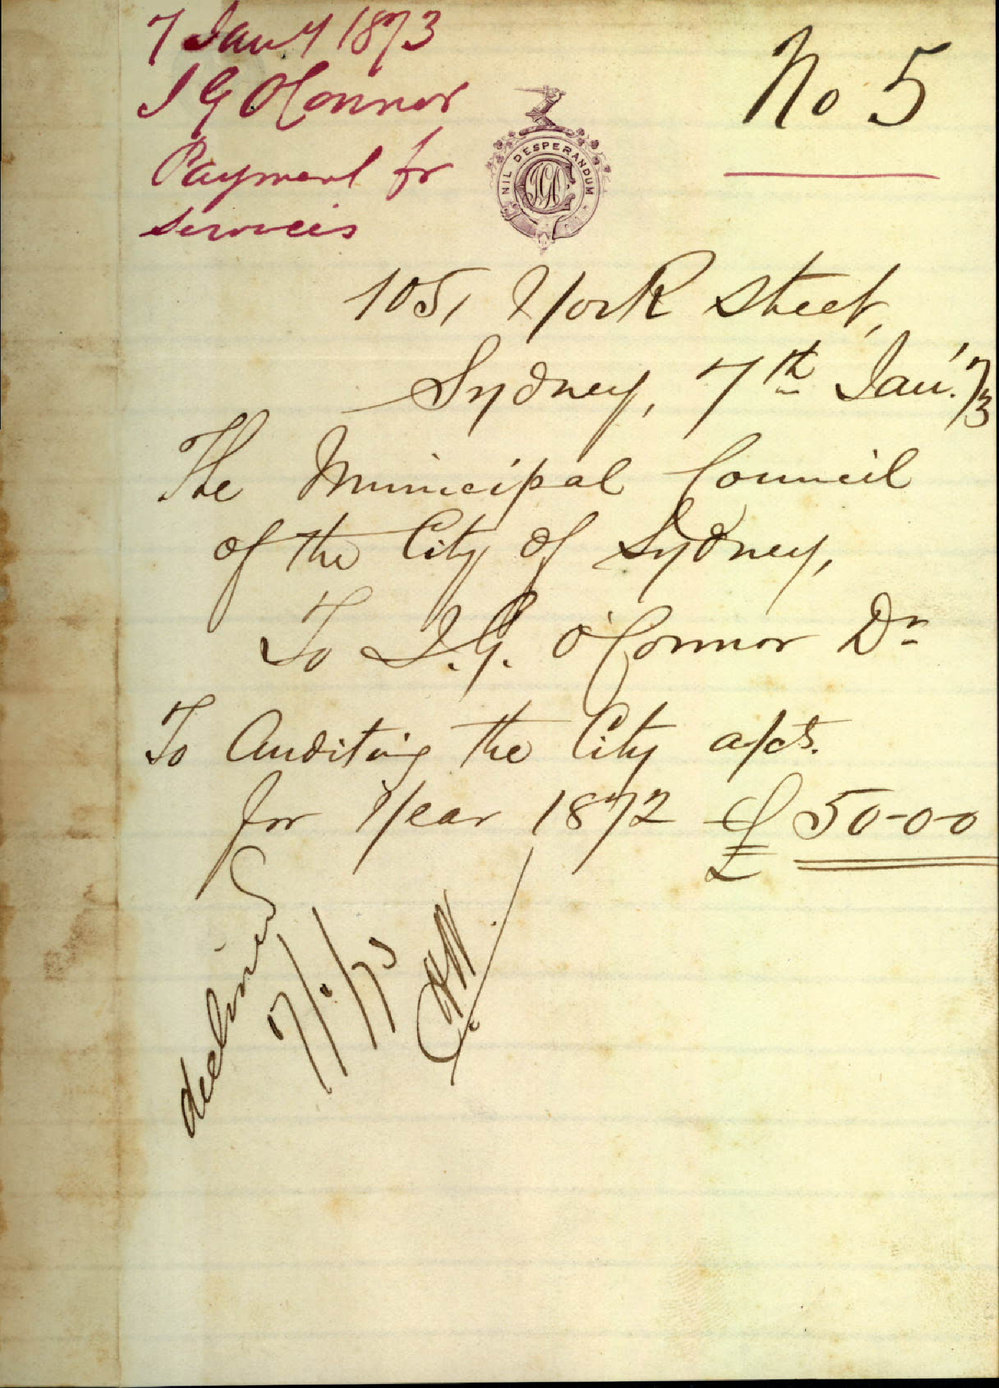 7 Jany 1873
J G O'Connor
Payment for
services
No 5
NIL DESPERANDUM
JGOC
105, York Street,
Sydney, 7th Jan'. /73
The Municipal Council
of the City of Sydney,
To J.G. O'Connor Dr
To Auditing the City a/cts.
for Year 1872 £50-0-0
declined
7/1/73